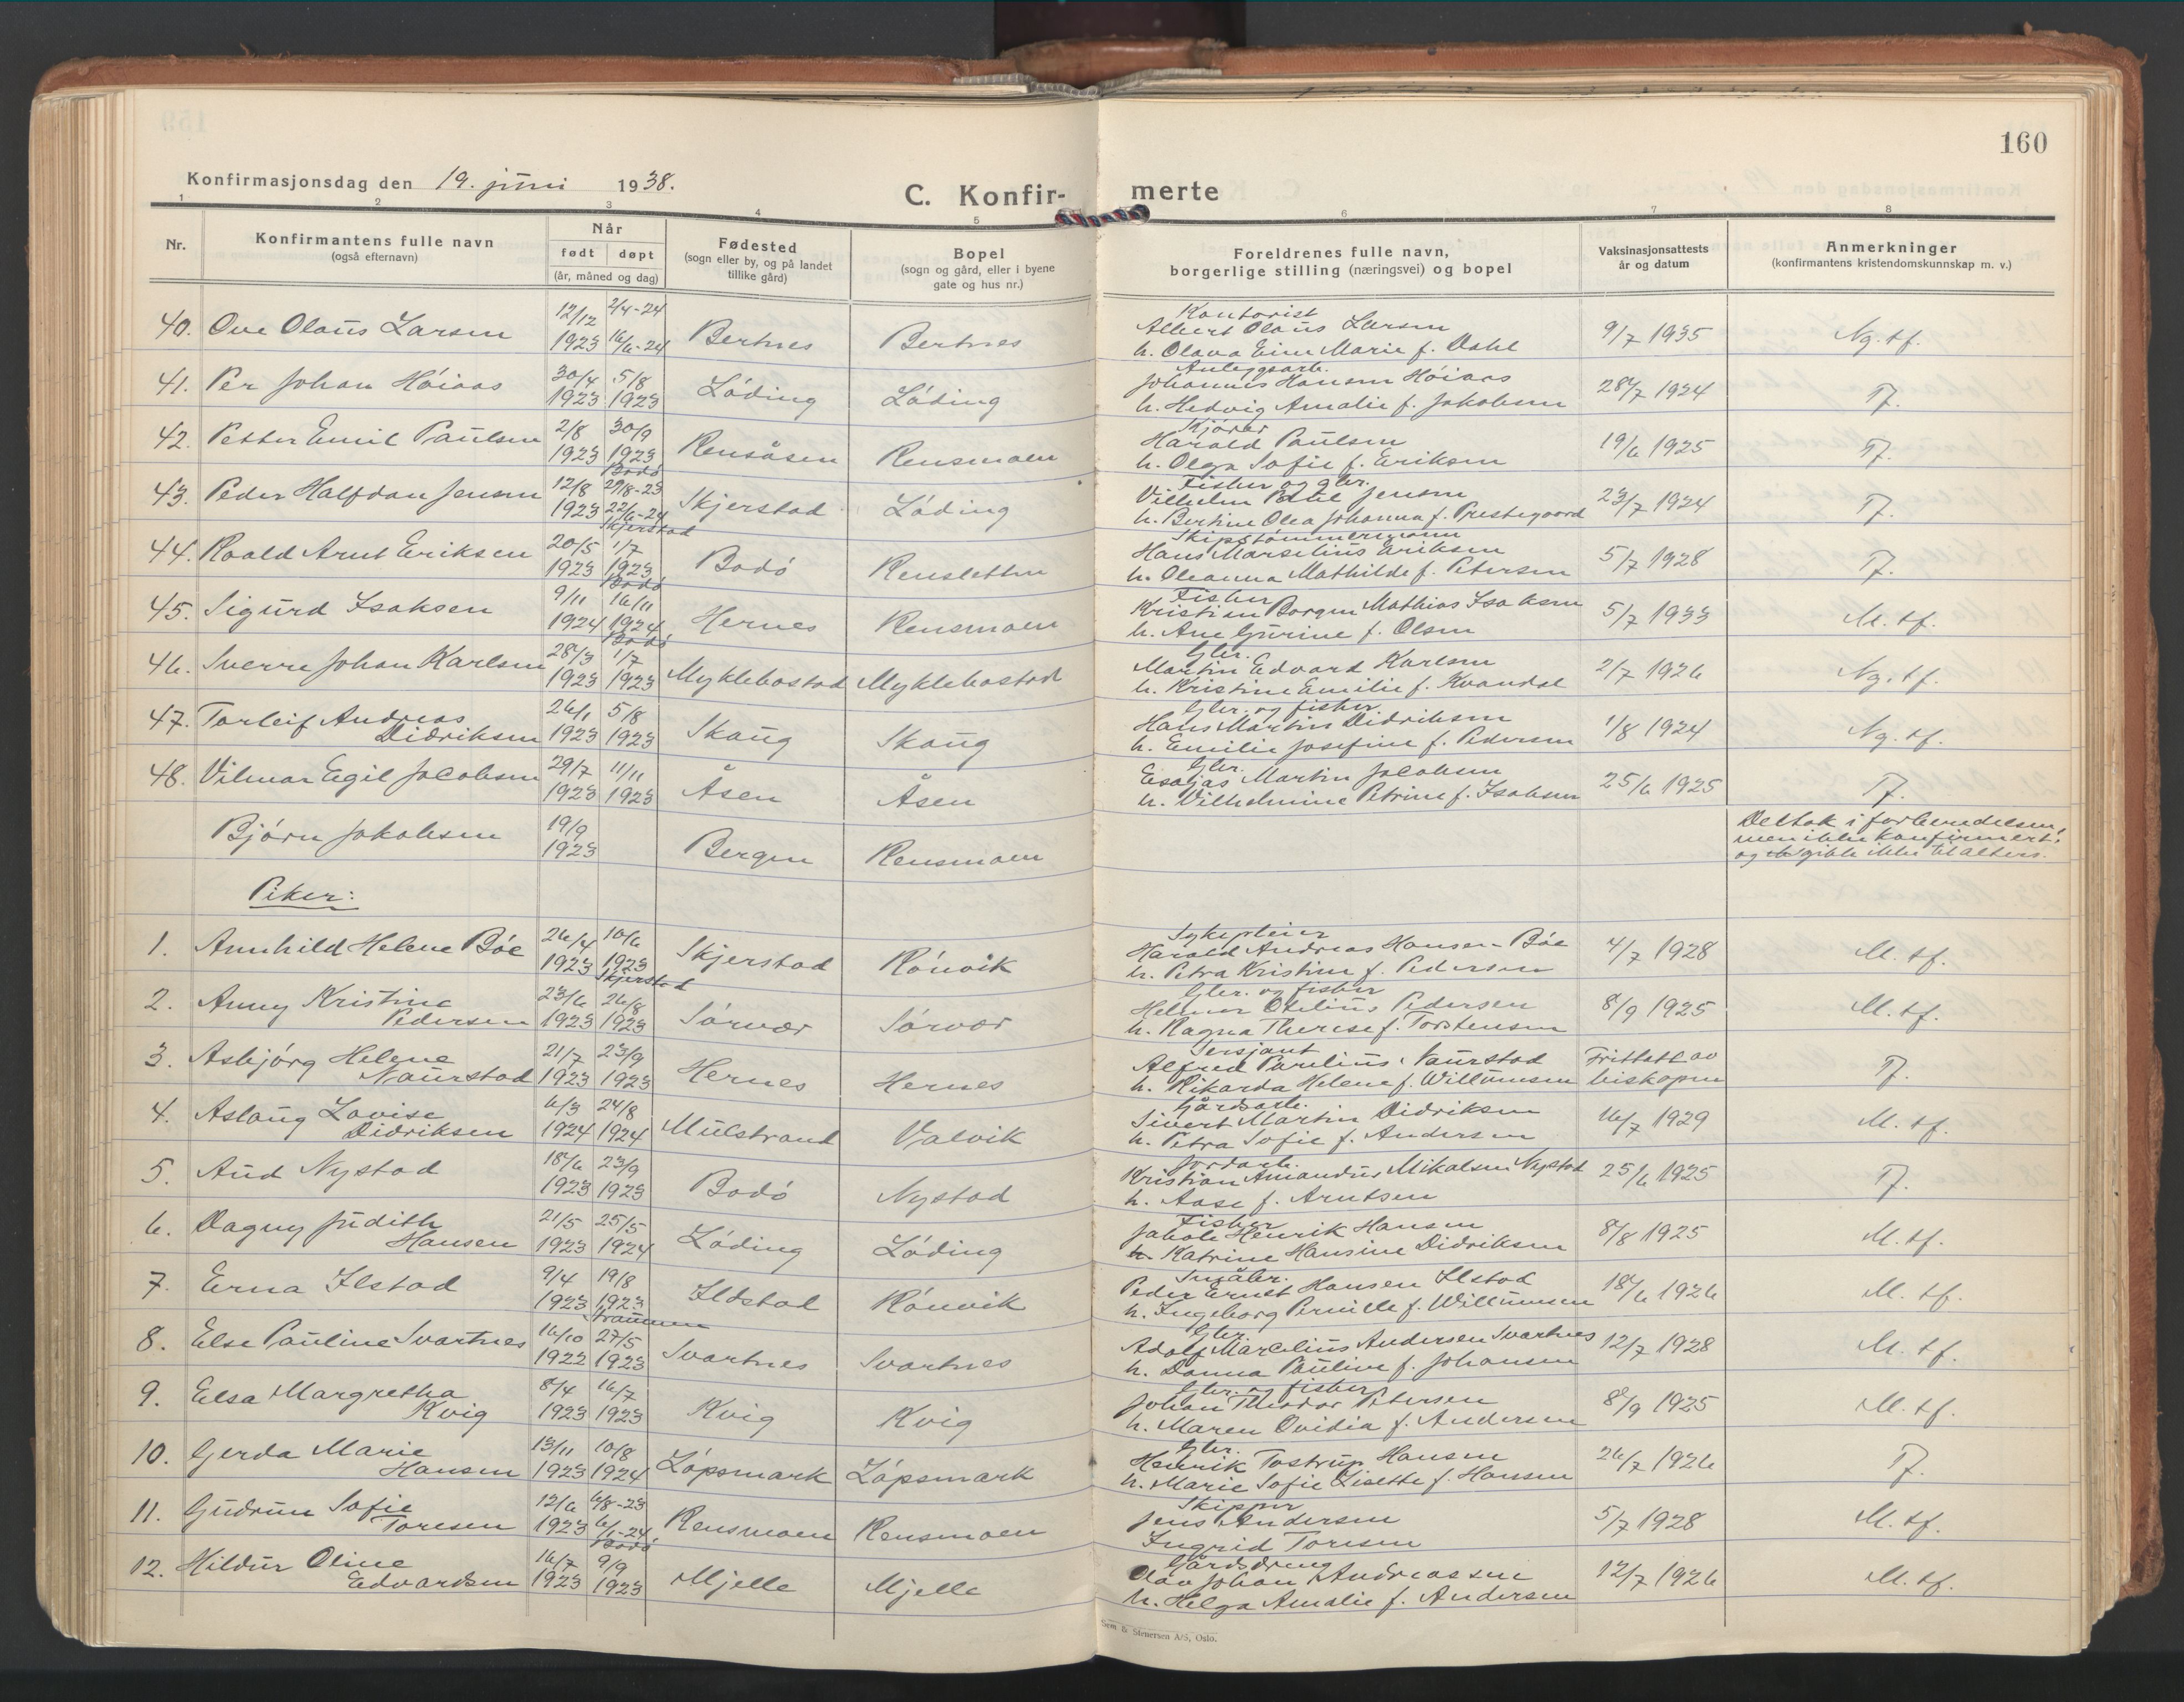 160
Konfirmasjonsdag den 19. juni 1938.
C. Konfir- merte
1 2 3 4 5 6 7 8
Nr.
Konfirmantens fulle navn
(også efternavn)
Når
født døpt
(år, måned og dag)
Fødested
(sogn eller by, og på landet
tillike gård)
Bopel
(sogn og gård, eller i byene
gate og hus nr.)
Foreldrenes fulle navn,
borgerlige stilling (næringsvei) og bopel
Vaksinasjonsattests
år og datum
Anmerkninger
(konfirmantens kristendomskunnskap m. v.)
Kontorist
40. Ove Olaus Larsen 12/12 2/4-24 Bertnes Bertnes Albert Olaus Larsen 9/7 1935 Ng. tf.
1923 16/6-24 h. Olava Marie f. Dahl
Anleggsarb.
41. Per Johan Höiaas 30/4 5/8 Löding Löding Johannes Hansen Höiaas 28/7 1924 T.
1923 1923 h. Hedvig Amalie f. Jakobsen
Kjörer
42. Petter Emil Paulsen 2/8 30/9 Rensåsen Rensmoen Harald Paulsen 19/6 1925 T.
1923 1923 h. Olga Sofie f. Eriksen
Bodö
Fisker og gbr.
43. Peder Halfdan Jensen 12/8 29/8-23 Skjerstad Löding Vilhelm Jensen 23/7 1924 T.
1923 22/6-24 h. Bertine Olea Johanna f. Prestegaard
Skjerstad
Skipstømmermann
44. Roald Arnt Eriksen 20/5 1/7 Bodö Rensletten Hans Marselius Eriksen 5/7 1928 T.
1923 1923 h. Oleanna Mathilde f. Petersen
Bodö
Fisker
45. Sigurd Isaksen 9/11 16/11 Hernes Rensmoen Kristian Borgen Mathias Isaksen 5/7 1933 M. tf.
1924 1924 h. Ane Gurine f. Olsen
Bodö
Gbr.
46. Sverre Johan Karlsen 28/3 1/7 Myklebostad Myklebostad Martin Edvard Karlsen 2/7 1926 Ng. tf.
1923 1923 h. Kristine Emilie f. Kvandal
Gbr. og fisker
47. Torleif Andreas 26/1 5/8 Skaug Skaug Hans Martin Didriksen 1/8 1924 Ng. tf.
Didriksen 1923 1923 h. Emilie Josefine f. Pedersen
Gbr.
48. Vilmar Egil Jacobsen 29/7 11/11 Åsen Åsen Esaijas Martin Jacobsen 25/6 1925 T.
1923 1923 h. Vilhelmine Petrine f. Isaksen
Björn Jakobsen 19/9 Bergen Rensmoen Deltok i forberedelsen,
1923 men ikke konfirmert,
og gikk ikke til alters.
Piker:
Sykepleier
1. Annhild Helene Böe 26/4 10/6 Skjerstad Rönvik Harald Andreas Hansen Böe 4/7 1928 M. tf.
1923 1923 h. Petra Kristine f. Pedersen
Skjerstad
Gbr. og fisker
2. Anny Kristine 23/6 26/8 Sörvær Sörvær Helmer Otelius Pedersen 8/9 1925 M. tf.
Pedersen 1923 1923 h. Ragna Therese f. Torstensen
Sersjant
3. Asbjörg Helene 21/7 23/9 Hernes Hernes Alfred Paulius Naurstad Frittatt av T.
Naurstad 1923 1923 h. Rikarda Helene f. Willumsen biskopen
Gårdsarb.
4. Aslaug Lovise 6/3 24/8 Mulstrand Valvik Sivert Martin Didriksen 16/7 1929 M. tf.
Didriksen 1924 1924 h. Petra Sofie f. Andersen
Jordarb.
5. Aud Nystad 18/6 23/9 Bodö Nystad Kristian Amandus Mikalsen Nystad 25/6 1925 T.
1923 1923 h. Aase f. Arntsen
Fisker
6. Dagny Judith 21/5 25/5 Löding Löding Jakob Henrik Hansen 8/8 1925 M. tf.
Hansen 1923 1924 h. Katrine Hansine Didriksen
Småbr.
7. Erna Ilstad 9/4 19/8 Ildstad Rönvik Peder Ernst Hansen Ilstad 18/6 1926 M. tf.
1923 1923 h. Ingeborg Pernille f. Willumsen
Straumen
Gbr.
8. Else Pauline Svartnes 16/10 27/5 Svartnes Svartnes Adolf Marcelius Andersen Svartnes 12/7 1928 M. tf.
1922 1923 h. Danna Pauline f. Johansen
Gbr. og fisker
9. Elsa Margretha 8/4 16/7 Kvig Kvig Johan Theodor Petersen 8/9 1925 M. tf.
Kvig 1923 1923 h. Maren Ovidia f. Andersen
Gbr.
10. Gerda Marie 13/11 10/8 Löpsmark Löpsmark Henrik Tostrup Hansen 26/7 1926 T.
Hansen 1923 1924 h. Marie Sofie Lisette f. Hansen
Skipper
11. Gudrun Sofie 12/6 6/8-23 Rensmoen Rensmoen Jens Andersen 5/7 1928 M. tf.
Toresen 1923 6/1-24 Ingrid Toresen
Bodö
Gårdsdreng
12. Hildur Oline 16/7 9/9 Mjelle Mjelle Olav Johan Andreassen 12/7 1926 M. tf.
Edvardsen 1923 1923 h. Helga Amalie f. Andersen
Sem & Stenersen A/S, Oslo.